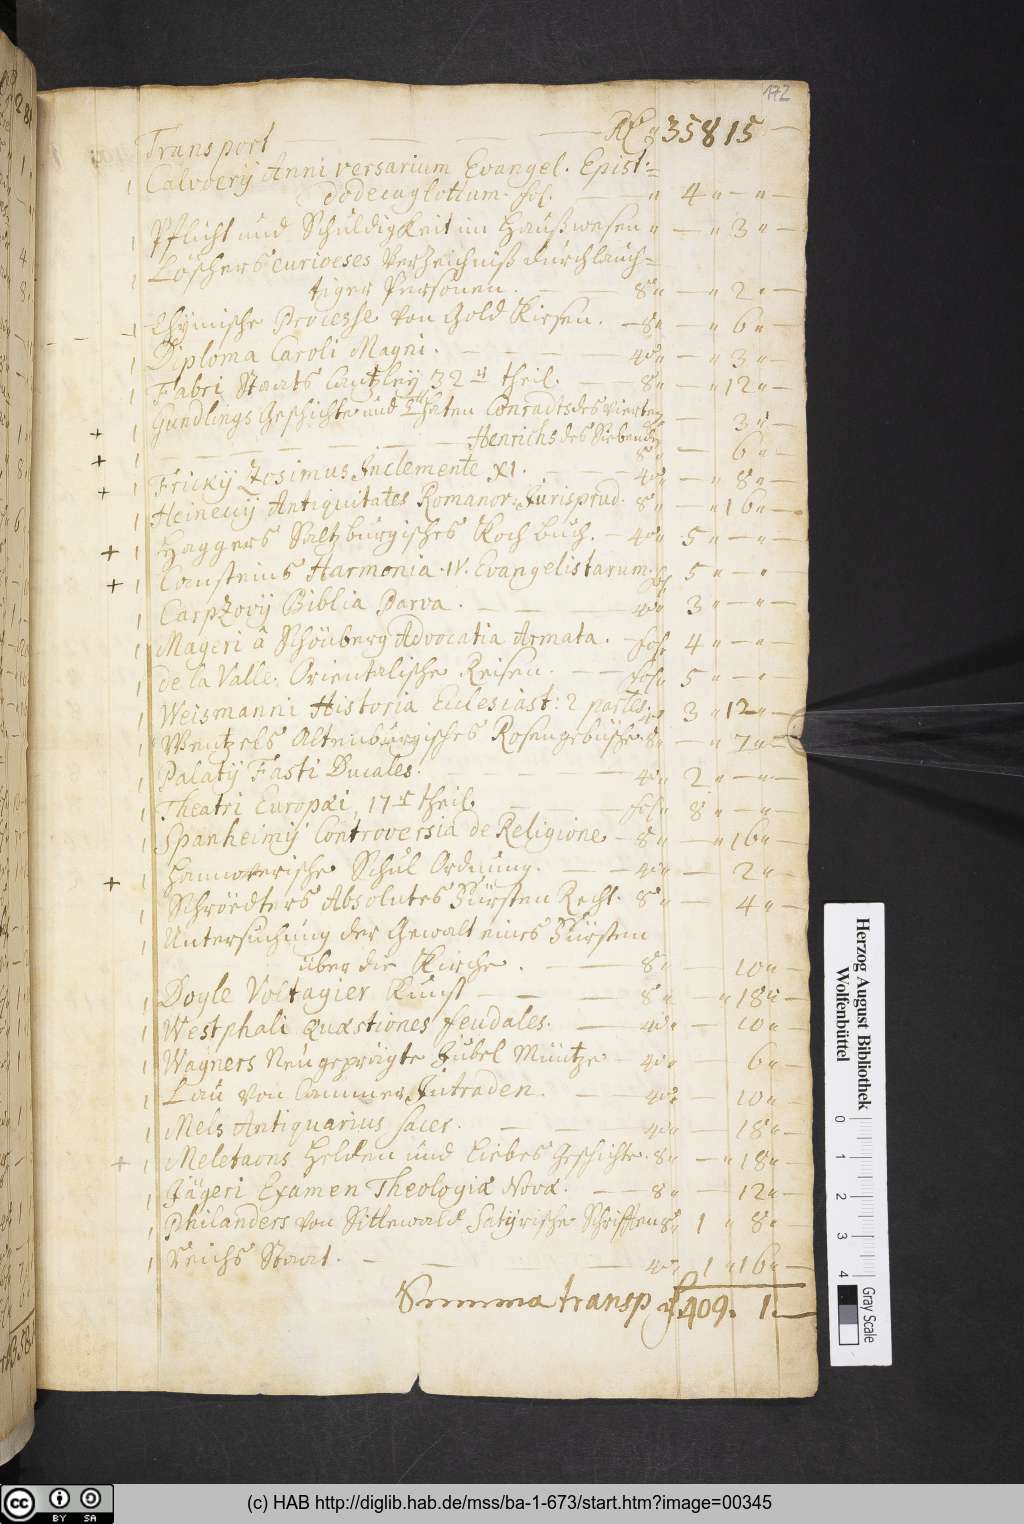 172
Transport — — — Rthlr 358 15 —
1 Calvoerÿ Anniversarium Evangel. Epist:=
dodecaglottum. fol. — " 4 " — " —
1 Pflicht und Schuldigkeit im Haußwesen " — " 3 " —
1 Löschers curioeses Verzeichniß durchlauch=
tiger Personen. — — 8° " — " 2 " —
1 Chÿmische Processe von Gold Kiesen. — 8 " — " 6 " —
1 Diploma Caroli Magni. — — — 4to " — " 3 " —
1 Fabri Staats Cantzleÿ 32 ter theil. — — 8 " — " 12 " —
+ 1 Gundlings Geschichte und Thaten Conradts des Vierten — 3 "
+ 1 — — — — Henrichs des Siebenden 8 " — 6 " —
+ 1 Frickÿ Zosimus Inclemente XI. — — — 4to " — " 8 " —
1 Heinecÿ Antiquitates Romanor. Jurisprud. 8 " — " 16 " —
+ 1 Haggers Saltzburgisches Koch buch. — 4to " 5 " — " —
+ 1 Cansteins Harmonia IV. Evangelistarum. fol 5 " — " —
1 Carpzovÿ Biblia Parva. — — — 4to " 3 " — " —
1 Mageri â Schönberg Advocatia Armata. — fol " 4 " — " —
1 de la Valle. Orientalische Reisen. — — fol " 5 " — " —
1 Weismanni Historia Eclesiast: 2 partes. 4to 3 " 12 " —
1 Wentzels Altenburgisches Rosengebüsche. 8 " — " 7 " —
1 Palatÿ Fasti Ducales. — — — 4to " 2 " — " —
1 Theatri Europæi, 17 ter theil — — — fol " 8 " — " —
1 Spanheimÿ Controversia de Religione — 8 " — " 16 " —
+ 1 Hannoverische Schul Ordnung. — — 4to " — 2 " —
1 Schröedters Absolutes Fürsten Recht. 8 " — 4 " —
1 Untersuchung der Gewalt eines Fürsten
über die Kirche. — — 8 " — 10 " —
1 Doyle Voltagier Kunst — — — 8 " — " 18 " —
1 Westphali Quæstiones feudales. — 4to " — 10 " —
1 Wagners Neu geprägte Jubel Müntze — 4to " — 6 " —
1 Lau von Cammer Intraden. — 4to " — 10 " —
1 Mels Antiquarius sacer. — — — 4to " — 18 " —
+ 1 Meletaons Helden und Liebes Geschichte. 8 " — " 18 " —
1 Jägeri Examen Theologiæ Novæ. — — 8 " — 12 " —
1 Philanders von Sittewald Satÿrische Schrifften 8 " 1 " 8 " —
1 Reichs Staat. — — — 4to " 1 " 16 " —
Summa transp 409. 1. —
Herzog August Bibliothek
Wolfenbüttel
0 1 2 3 4
Gray Scale
cc BY SA
(c) HAB http://diglib.hab.de/mss/ba-1-673/start.htm?image=00345